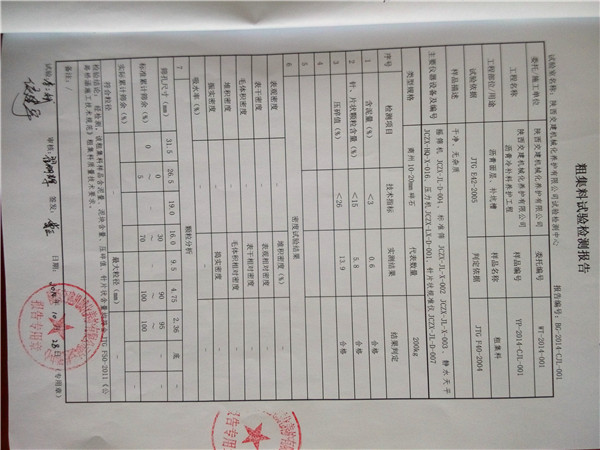 粗集料试验检测报告
试验室名称：陕西交建机械化养护有限公司试验检测中心 报告编号：BG-2014-CJL-001
委托/施工单位 陕西交建机械化养护有限公司 委托编号 WT-2014-001
工程名称 沥青冷补料养护工程 样品编号 YP-2014-CJL-001
工程部位/用途 沥青面层、补坑槽 样品名称 粗集料
试验依据 JTG E42-2005 判定依据 JTG F40-2004
样品描述 干净、无杂质
主要仪器设备及编号 JCZX-JL-D-004、标准筛 JCZX-JL-X-002 JCZX-JL-X-003、静水天平
JCZX-HQ-X-016、压力机JCZX-LX-D-001、针片状规准仪JCZX-JL-D-007
类型规格 10-20mm碎石 代表数量 200kg
序号 检测项目 技术指标 实测结果 结果判定
1 含泥量（%） <3 0.6 合格
2 针、片状颗粒含量（%） <15 5.8 合格
3 压碎值（%） <26 13.9 合格
4
5
6 密度试验结果
表观密度 - 堆积密度（%） -
表干密度 - 表观相对密度 -
毛体积密度 - 表干相对密度 -
堆积密度 - 毛体积相对密度 -
振实密度 - 捣实密度 -
吸水率（%） -
7 颗粒分析
筛孔尺寸（mm） 31.5 26.5 19.0 16.0 9.5 4.75 2.36 底
标准累计筛余（%） 0 0～5 30～70 90～100 95～100
实际累计筛余（%）
符合粒径 最大粒径（mm） -
检验结论：经检测，该粗集料样品含泥量、泥块含量、压碎值、针片状含量指标符合JTG F50-2011《公
路桥涵施工技术规范》粗集料质量技术要求。
备注：/
试验： 审核： 签发： 日期：2014年10月28日（专用章）
报告专用章
报告专用章